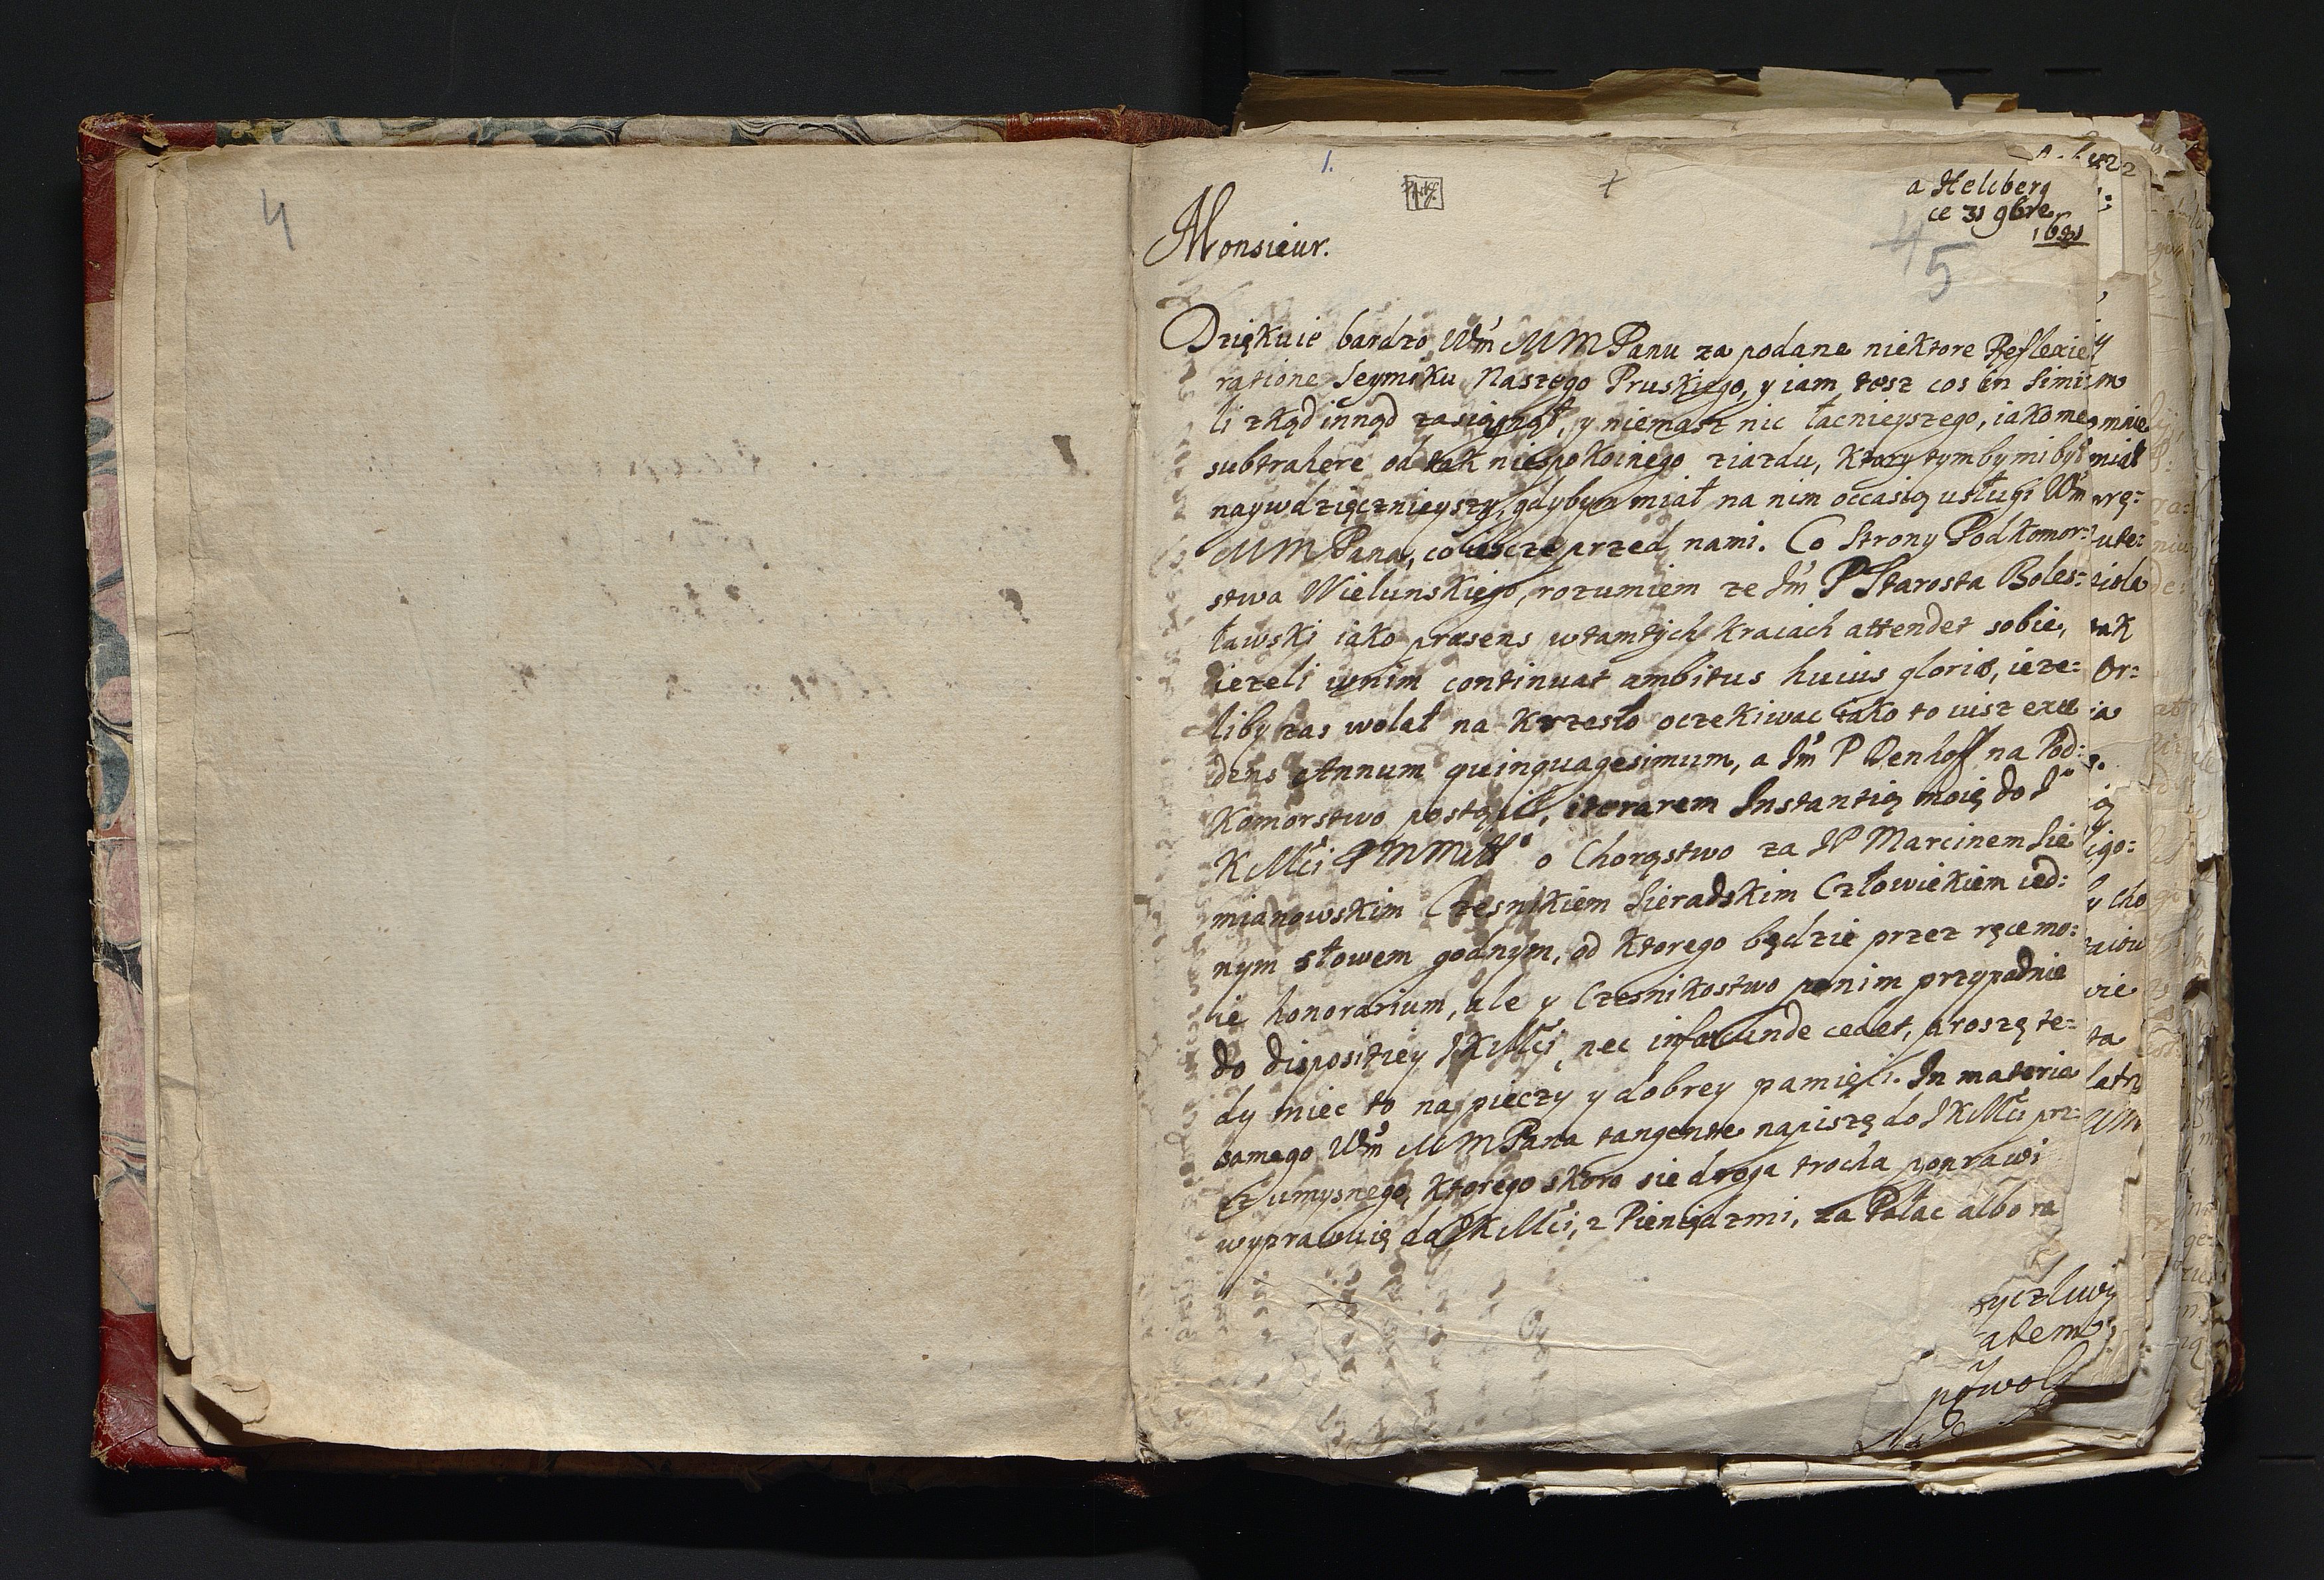 4
1.
a Helsberg
ce 31 9bre
1681
5
Monsieur.
Dziękuie bardzo Wm MMPanu za podane niektore Reflexie
ratione Seymiku Naszego Pruskiego, y iam tesz cos in simi
li zkąd innąd zasiągnął, y niemasz nic łacnieyszego, iako me
subtrahere od tak niespokoinego ziazdu, ktory tymbymi był
naywdzięcznieyszy, gdybym miał na nim occasią usługi Wm
MMPana, co ieszcze przed nami. Co Strony Podkomor:
stwa Wielunskiego, rozumiem ze Jm P Starosta Boles:
ławski iako præsens w tamtych kraiach attendet sobie,
iezeli wnim continuat ambitus huius gloriæ, ieze:
liby zas wolał na krzesło oczekiwac iako to iusz exce
dens Annum quinquagesimum, a Jm P Denhoff na Pod:
komorstwo postąpił, iterarem Instantią moię do J
KMci o Chorąstwo za JP Marcinem Sie
mianowskim Czesnikiem Sieradskim Człowiekiem ied:
nym słowem godnym, od ktorego będzie przez ręce mo:
ie honorarium, ale y Czesnikostwo ponim przypadnie
do dispositiey JKMci, nec infæcunde cedet, proszę te:
dy miec to na pieczy y dobrey pamięci. In materia
samego Wm MMPana tangente napiszę do JKMci prz:
ez umysnego, ktorego skoro sie droga trocha poprawi
wyprawuię do JKMci, z Pieniądzmi, za Pałac albo ra